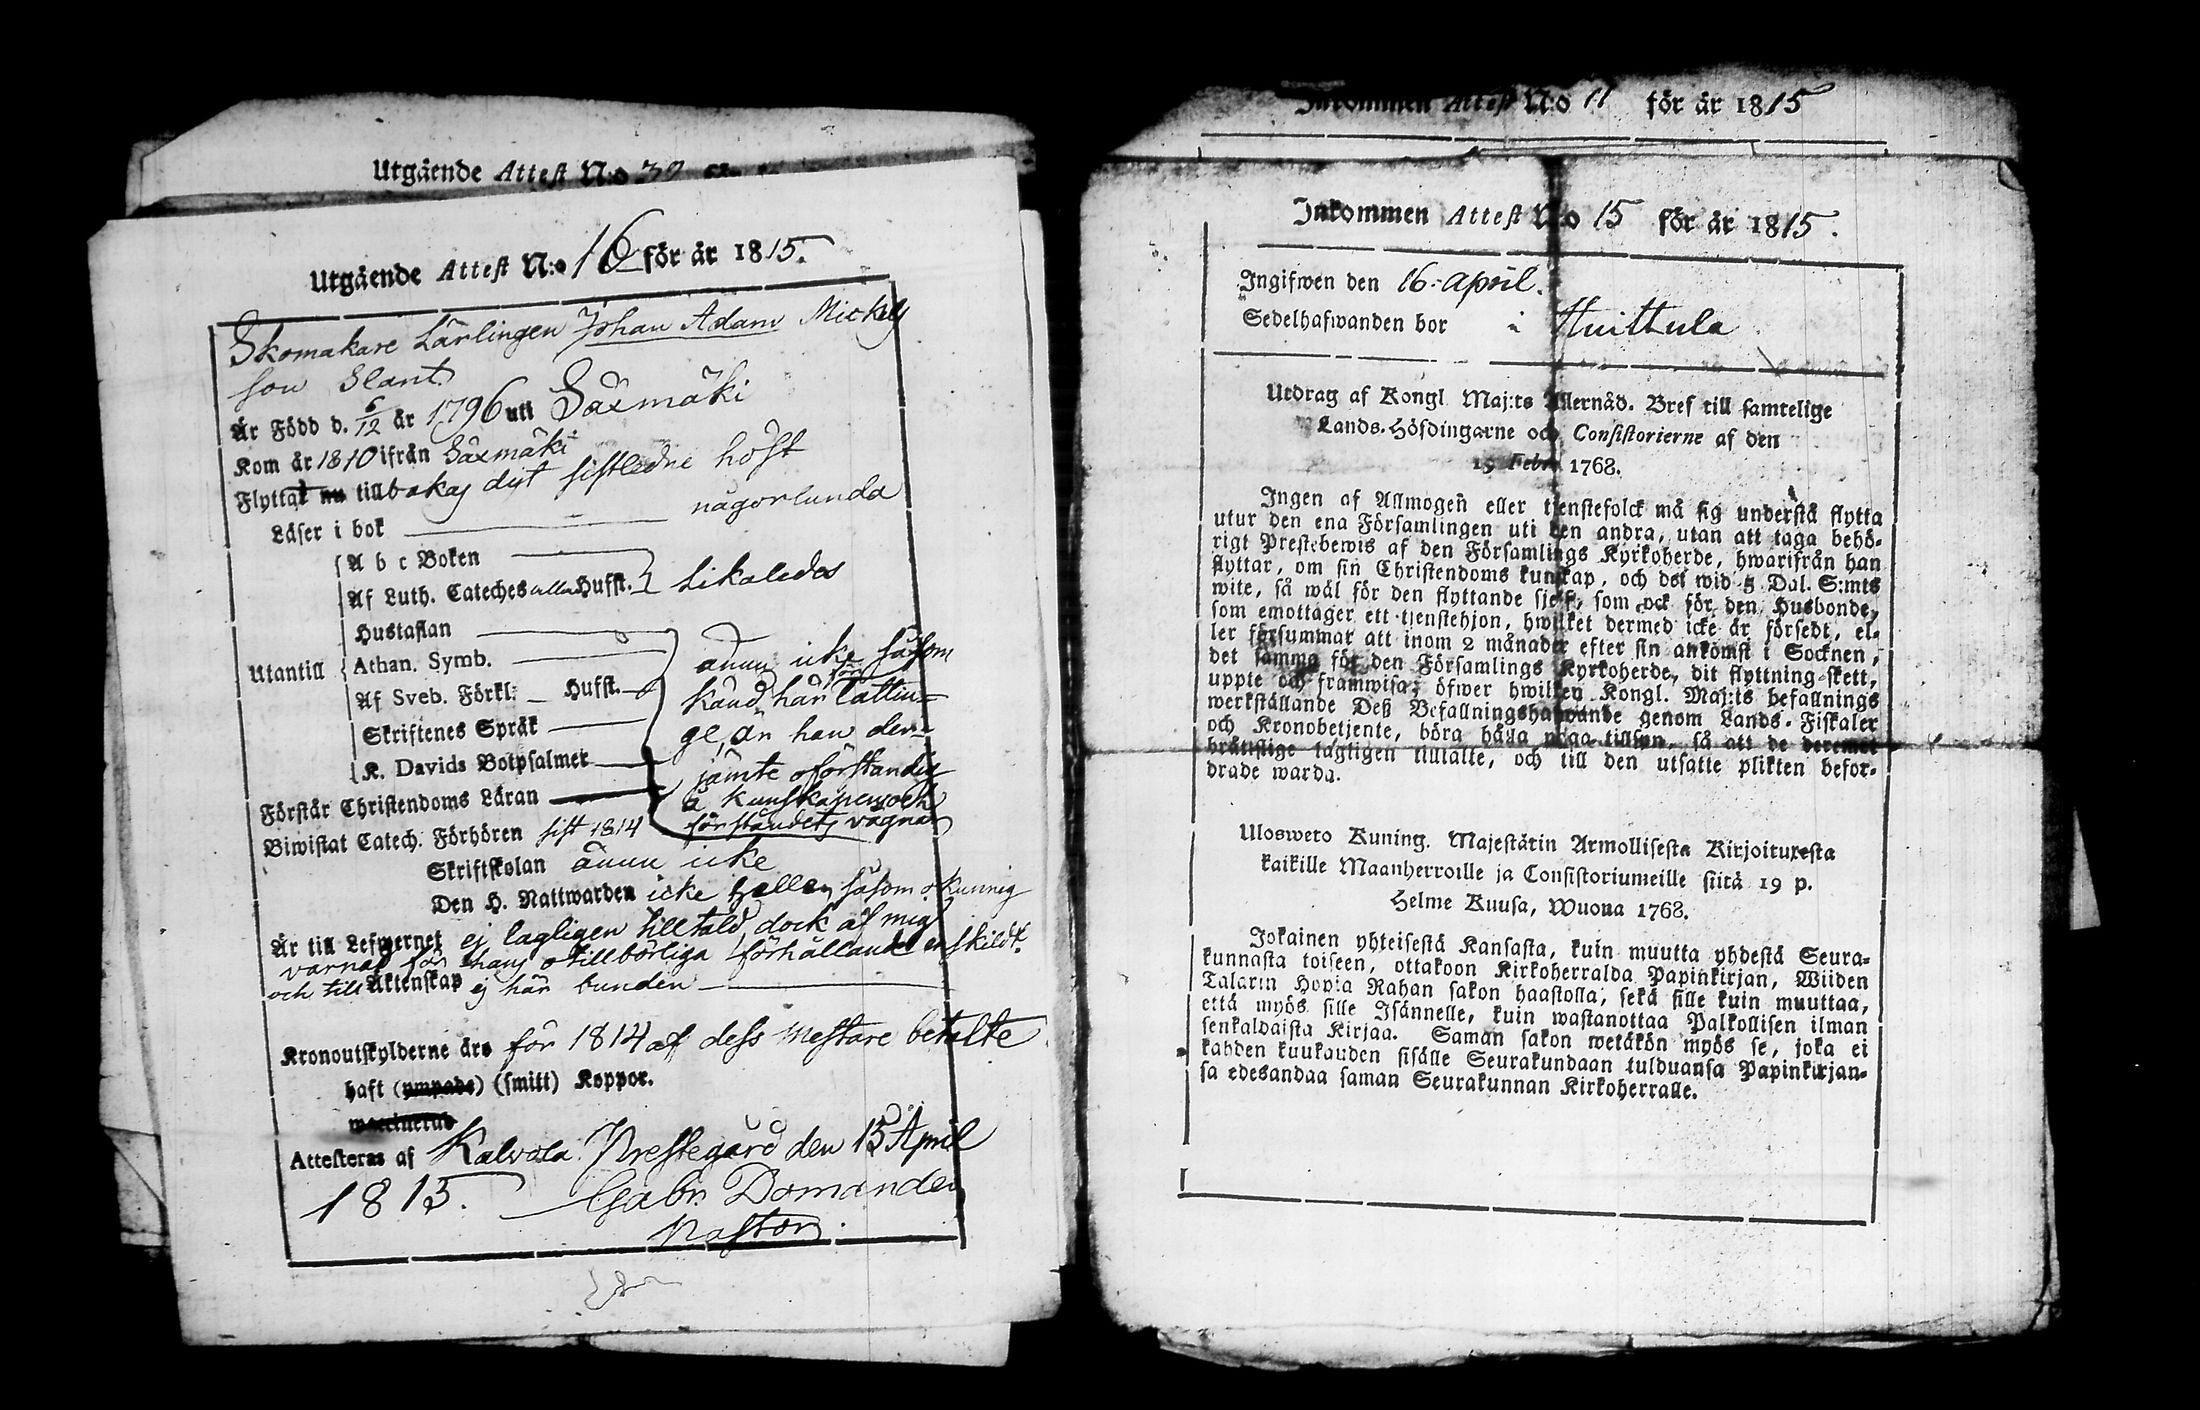 Utgående Attest N:o 32
Utgående Attest N:o 16 för år 1815.
Skomakare Lärlingen Johan Adam Mickels
son Slant.
Är Född d. 6/12 år 1796 uti Säxmäki
Kom år 1810 ifrån Säxmäki
Flyttat nu tillbakas dit sistledne höst
Läser i bok någorlunda
A b c Boken
Af Luth. Cateches alla Hufst. Likaledes
Hustaflan
Utantill Athan. Symb. ännu icke såsom
Af Sveb. Förkl: Hufst. känd här för lättin-
Skriftenes Språk ge, än han der-
K. Davids Botpsalmer jämte oförståndig
Förstår Christendoms Läran å kunskapens och
Biwistat Catech. Förhören sist 1814 förståndets vägnar
Skriftskolan ännu icke
Den H. Nattwarden icke heller såsom okunnig
Är till Lefwernet ej lagligen tilltald, dock af mig
varnad för hans otillbörliga förhållande enskildt.
och till Äktenskap ej här bunden
Kronoutskylderne äro för 1814 af dess Mestare betalte
haft (ympade) (smitt) Koppor.
waccinerad
Attesteras af Kalvola Prestegård den 15 April
1815. Gabr. Domander
Pastor.
Inkommen Attest N:o 11 för år 1815
Inkommen Attest N:o 15 för år 1815.
Ingifwen den 16. April.
Sedelhafwanden bor i Huittula
Utdrag af Kongl. Maj:ts Allernåd. Bref till samtelige
Lands-Höfdingarne och Consistorierne af den
19 Febr. 1768.
Ingen af Allmogen eller tjenstefolck må sig understå flytta
utur den ena Församlingen uti den andra, utan att taga behö-
rigt Prestebewis af den Församlings Kyrkoherde, hwarifrån han
flyttar, om sin Christendoms kunskap, och det wid 5 Dal. S:mts
wite, så wäl för den flyttande sjelf, som ock för den Husbonde,
som emottager ett tjenstehjon, hwilket dermed icke är försedt, el-
ler försummar att inom 2 månader efter sin ankomst i Socknen,
det samma för den Församlings Kyrkoherde, dit flyttning skett,
uppte och framwisa; öfwer hwilken Kongl. Maj:ts befallnings
werkställande Deß Befallningshafwande genom Lands-Fiskaler
och Kronobetjente, böra hålla noga tillsyn, så att de deremot
bråttslige lagligen tilltalte, och till den utsatte plikten befor-
drade warda.
Ulosweto Kuning. Majestätin Armollisesta Kirjoituxesta
kaikille Maanherroille ja Consistoriumeille siitä 19 p.
Helme Kuusa, Wuona 1768.
Jokainen yhteisestä Kansasta, kuin muutta yhdestä Seura-
kunnasta toiseen, ottakoon Kirkoherralda Papinkirjan, Wiiden
Talarin Hopia Rahan sakon haastolla, sekä sille kuin muuttaa,
että myös sille Isännelle, kuin wastanottaa Palkollisen ilman
senkaldaista Kirjaa. Saman sakon wetäkön myös se, joka ei
kahden kuukauden sisälle Seurakundaan tulduansa Papinkirjan-
sa edesandaa saman Seurakunnan Kirkoherralle.